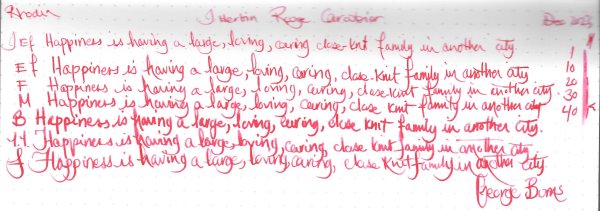 Rhodia J Herbin Rouge Caroubier Dec 2023
J Ef Happiness is having a large, loving, caring close-knit family in another city. 1
Ef Happiness is having a large, loving, caring, close-knit family in another city 10
F Happiness is having a large, loving, caring, close knit family in another city. 20
M Happiness is having a large, loving, caring, close knit family in another city 30
B Happiness is having a large, loving, caring, close knit family in another city. 40
1.1 Happiness is having a large, loving, caring, close knit family in another city.
f Happiness is having a large, loving, caring, close knit family in another city
George Burns